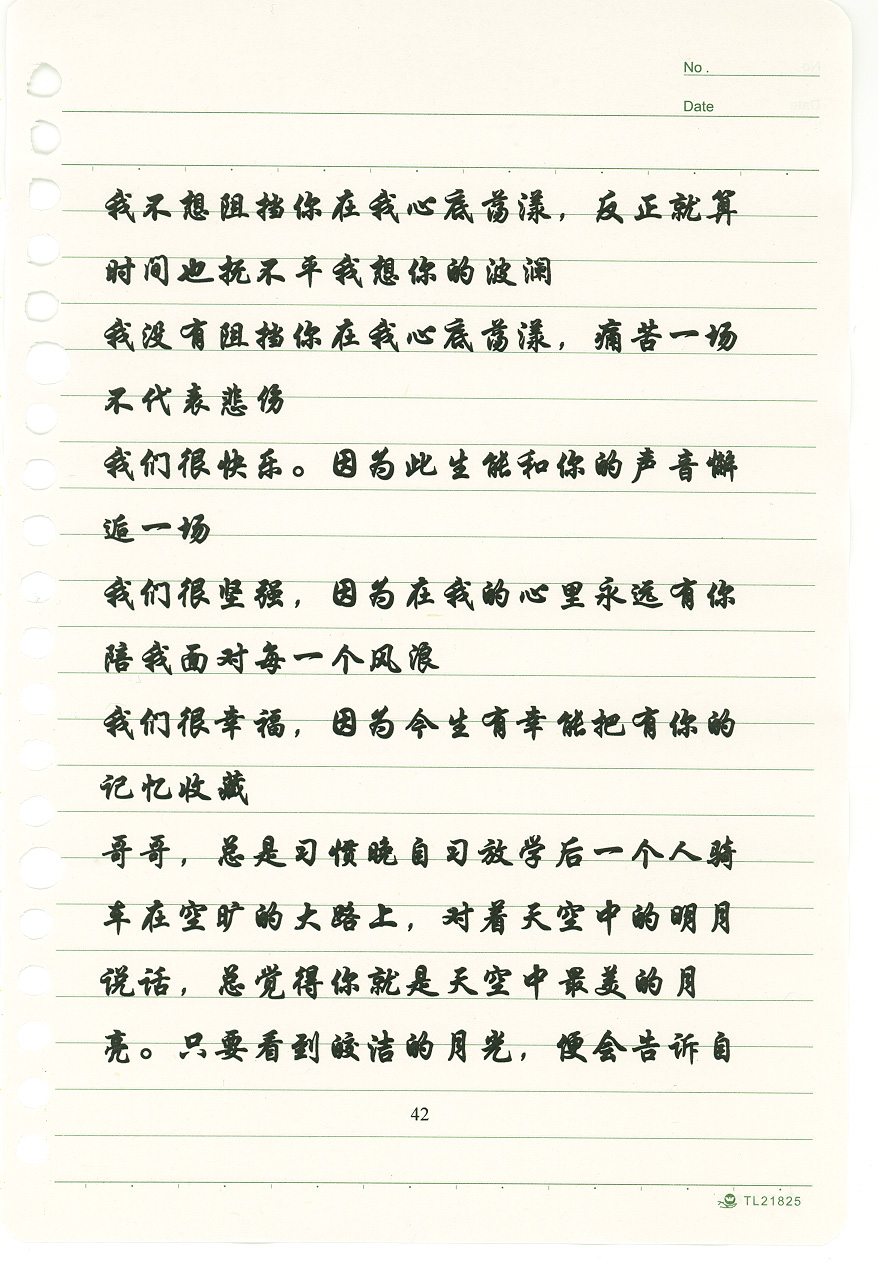 No .
Date
我不想阻挡你在我心底荡漾，反正就算
时间也抚不平我想你的波澜
我没有阻挡你在我心底荡漾，痛苦一场
不代表悲伤
我们很快乐。因为此生能和你的声音懈
逅一场
我们很坚强，因为在我的心里永远有你
陪我面对每一个风浪
我们很幸福，因为今生有幸能把有你的
记忆收藏
哥哥，总是习惯晚自习放学后一个人骑
车在空旷的大路上，对着天空中的明月
说话，总觉得你就是天空中最美的月
亮。只要看到皎洁的月光，便会告诉自
42
TL21825